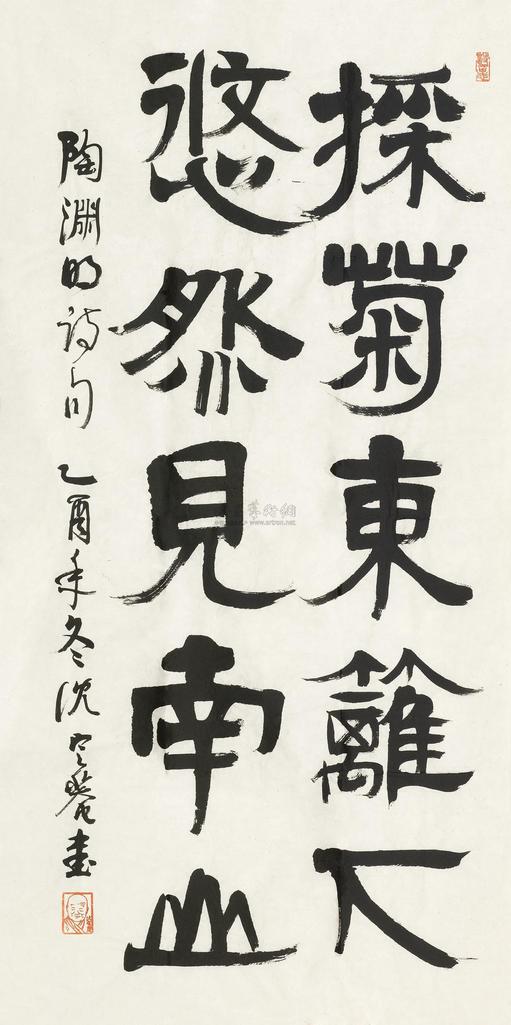 採菊東籬下
悠然見南山
陶淵明詩句 乙酉年冬沈書
www.artron.net